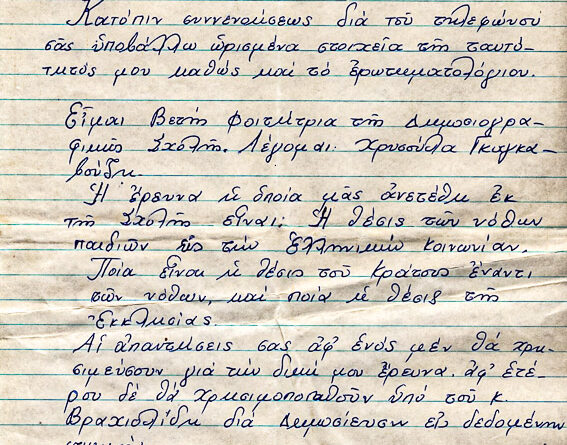 Κατόπιν συννενοήσεως διά τοῦ τηλεφώνου
σᾶς ὑποβάλλω ὡρισμένα στοιχεῖα τῆς ταυτό-
τητός μου καθώς καί τό ἐρωτηματολόγιον.
Εἶμαι Βετής φοιτήτρια τῆς Δημοσιογρα-
φικῆς Σχολῆς. Λέγομαι: Χρυσούλα Γκιγκα-
βούδη.
Ἡ ἔρευνα ἡ ὁποία μᾶς ἀνετέθη ἐκ
τῆς Σχολῆς εἶναι: Ἡ θέσις τῶν νόθων
παιδιῶν εἰς τήν Ἑλληνικήν κοινωνίαν.
Ποία εἶναι ἡ θέσις τοῦ Κράτους ἔναντι
τῶν νόθων, καί ποία ἡ θέσις τῆς
Ἐκκλησίας.
Αἱ ἀπαντήσεις σας ἀφ' ἑνός μέν θά χρη-
σιμεύσουν γιά τήν δική μου ἔρευνα. ἀφ' ἑτέ-
ρου δέ θά χρησιμοποιηθοῦν ὑπό τοῦ κ.
Βραχιολίδη διά δημοσίευσιν εἰς δεδομένην